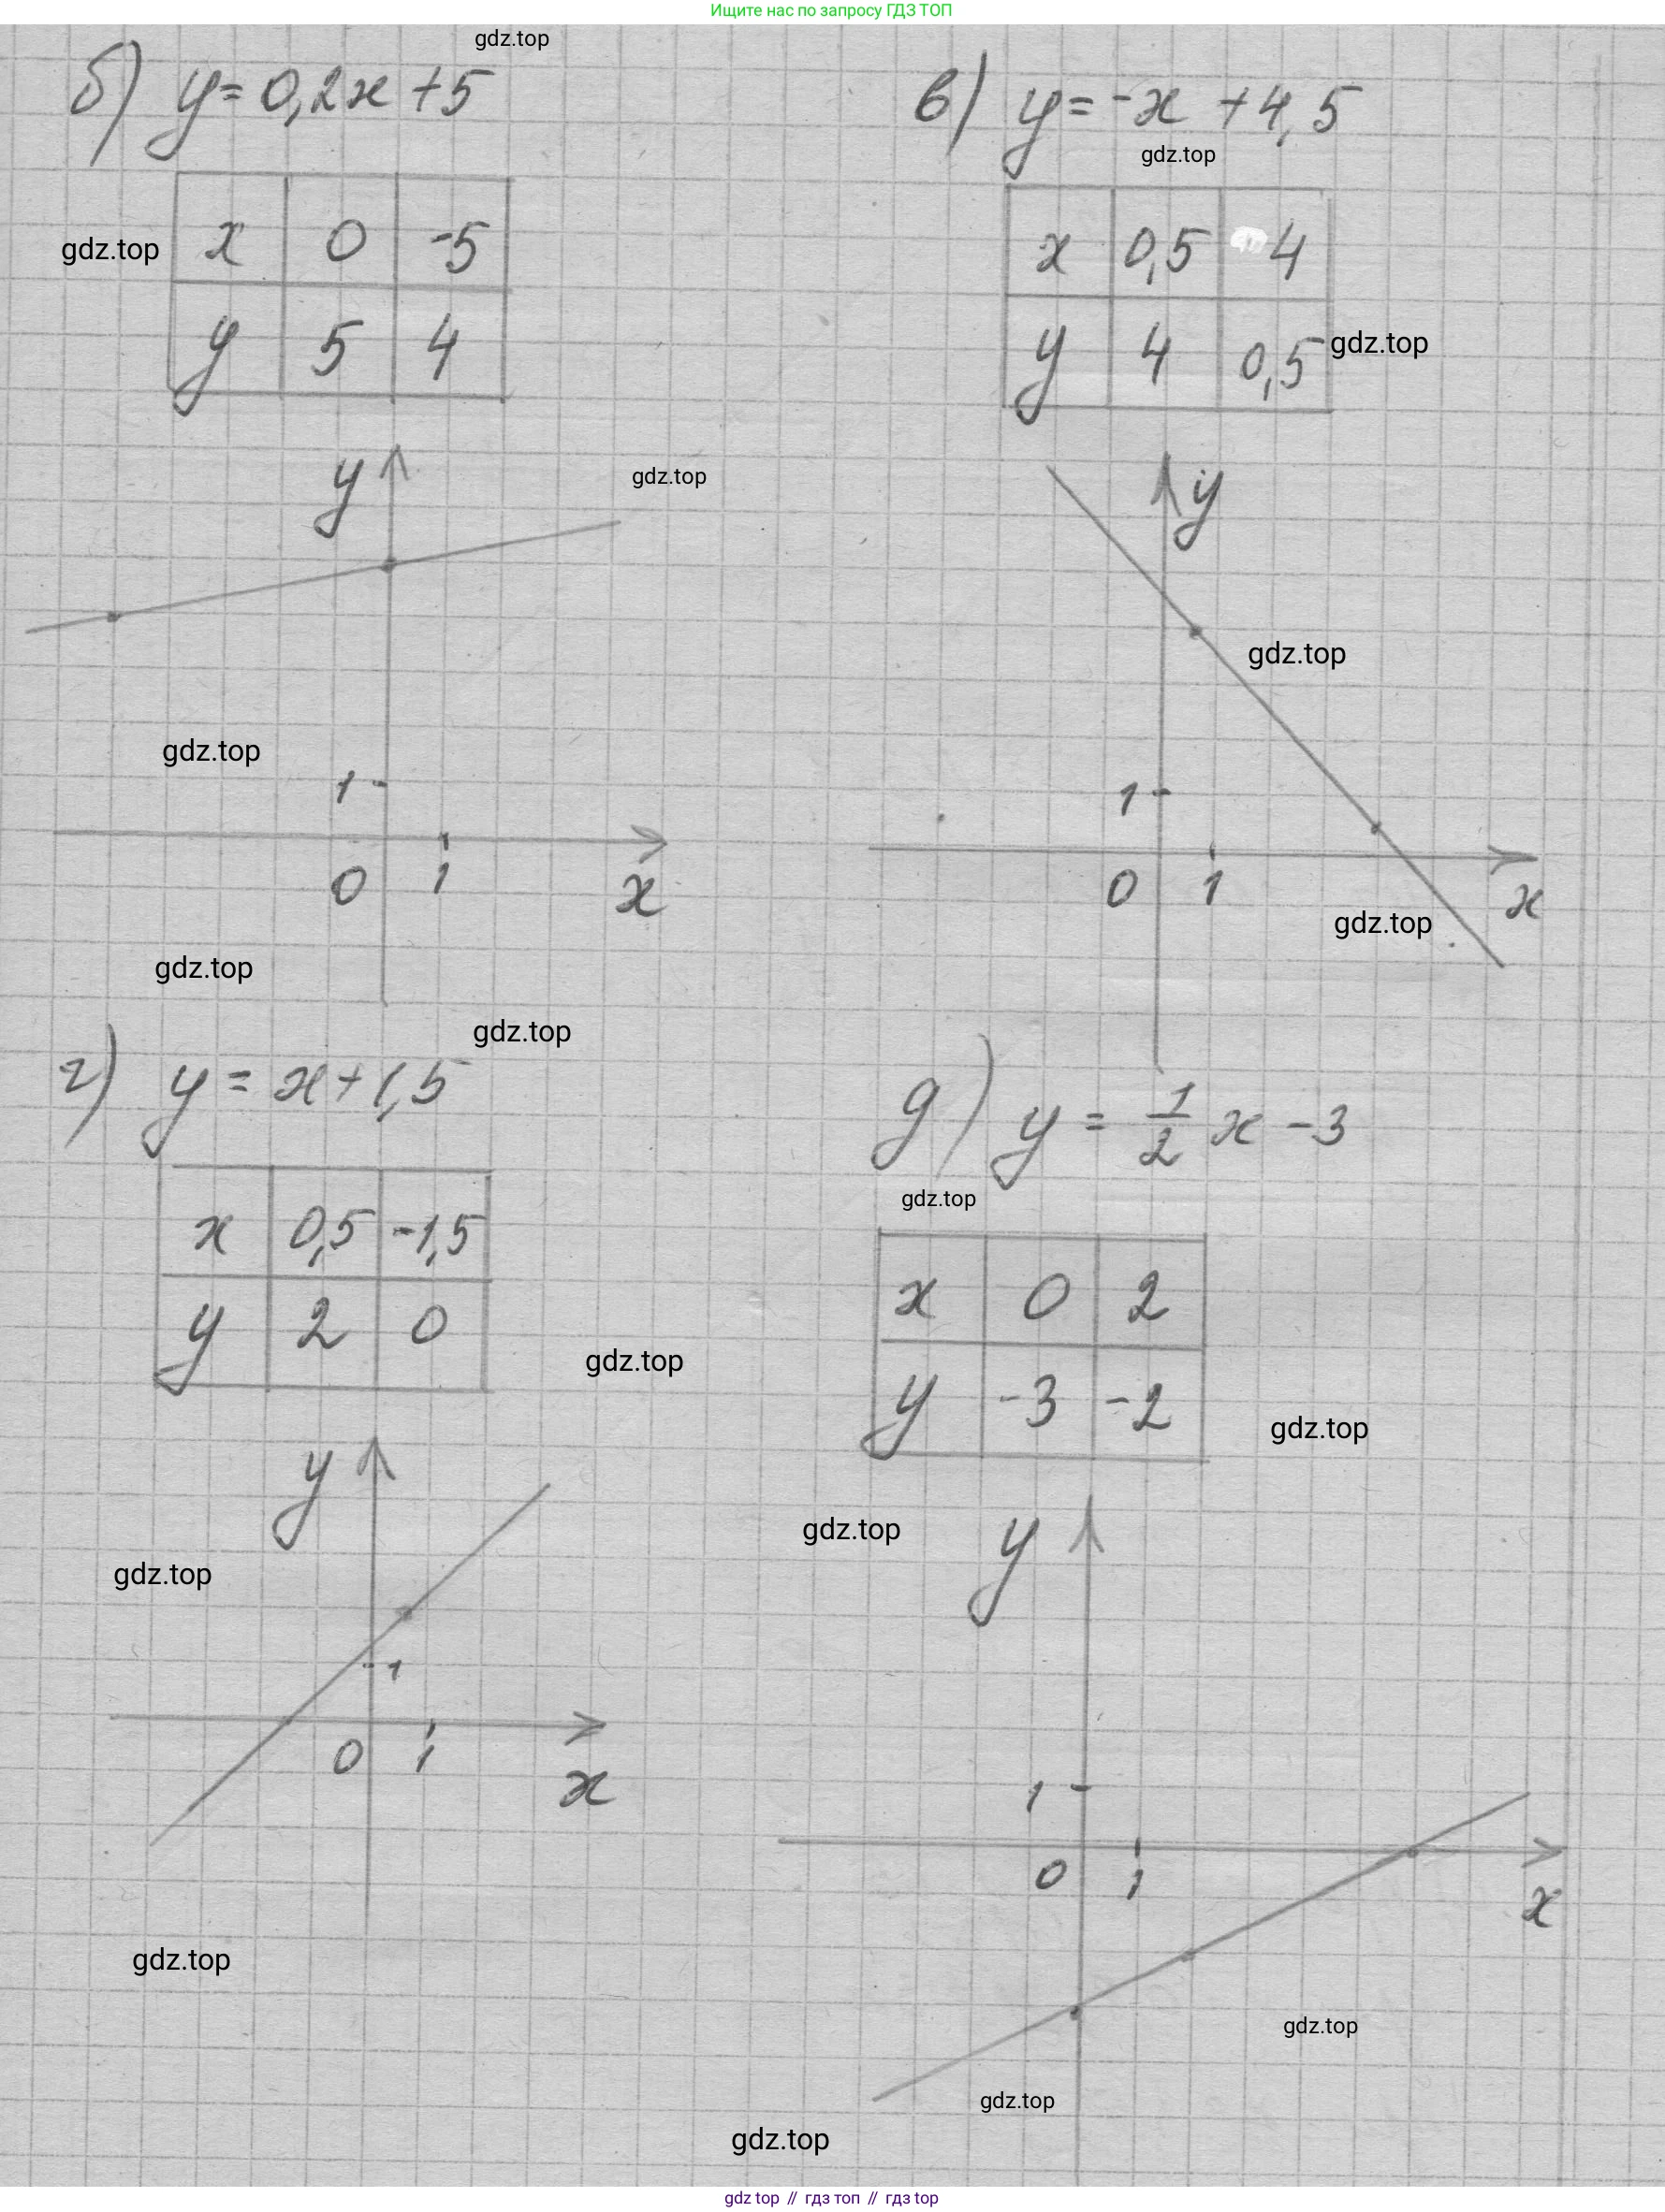 Ищите нас по запросу ГДЗ ТОП
gdz.top
б) y = 0,2x + 5
в) y = -x + 4,5
gdz.top
gdz.top
x 0 -5
y 5 4
x 0,5 4
y 4 0,5
gdz.top
y
gdz.top
y
gdz.top
gdz.top
1
0 1 x
1
0 1 x
gdz.top
gdz.top
gdz.top
г) y = x + 1,5
д) y = 1/2 x - 3
gdz.top
x 0,5 -1,5
y 2 0
gdz.top
x 0 2
y -3 -2
gdz.top
y
gdz.top
1
0 1 x
gdz.top
y
1
0 1 x
gdz.top
gdz.top
gdz.top
gdz.top
gdz top // гдз топ // гдз top